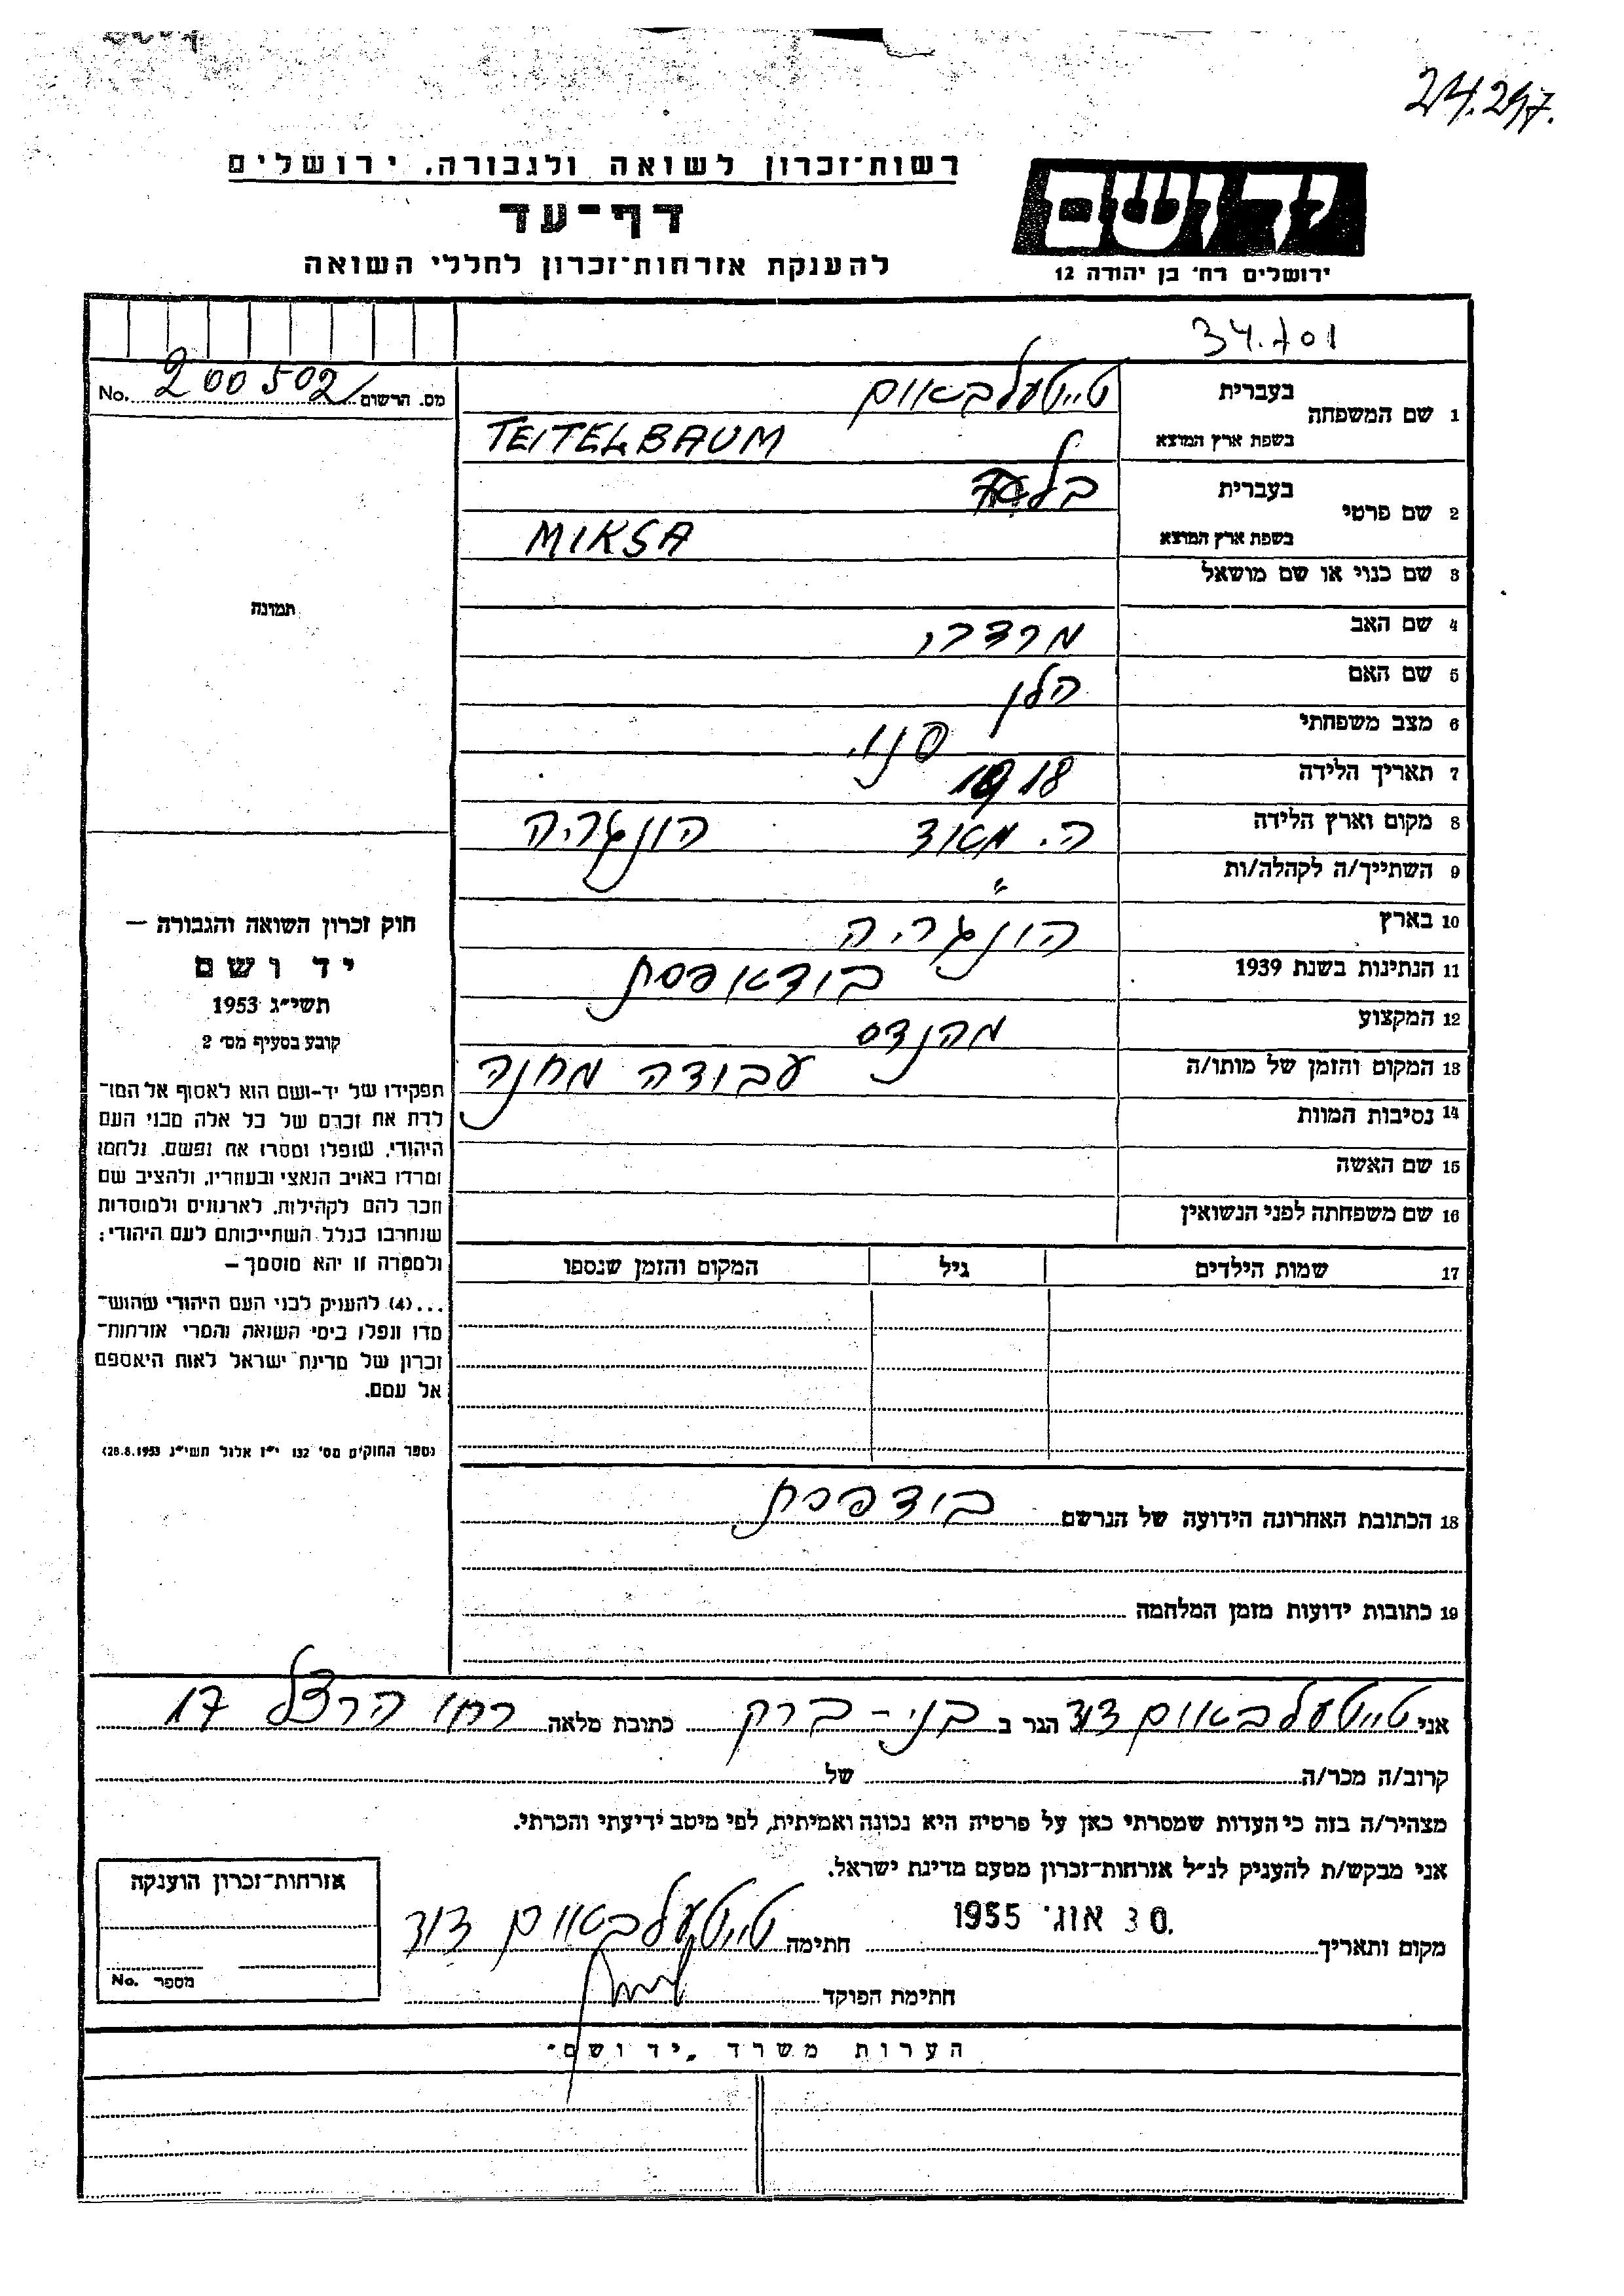 24.297.
רשות־זכרון לשואה ולגבורה, ירושלים
דף־עד
להענקת אזרחות־זכרון לחללי השואה
יד ושם
ירושלים רח' בן יהודה 12
34.701
מס. הרשום 200502 No.
1 שם המשפחה בעברית טייטעלבאום
בשפת ארץ המוצא TEITELBAUM
2 שם פרטי בעברית
בשפת ארץ המוצא MIKSA
3 שם כנוי או שם מושאל
4 שם האב מרדכי
5 שם האם הלן
6 מצב משפחתי פנוי
7 תאריך הלידה 1918
8 מקום וארץ הלידה ה. מאוד הונגריה
9 השתייך/ה לקהלה/ות "
10 בארץ הונגריה
11 הנתינות בשנת 1939 בודאפסת
12 המקצוע מהנדס
13 המקום והזמן של מותו/ה עבודה מחנה
14 נסיבות המוות
15 שם האשה
16 שם משפחתה לפני הנשואין
17 שמות הילדים גיל המקום והזמן שנספו
תמונה
חוק זכרון השואה והגבורה —
יד ושם
תשי"ג 1953
קובע בסעיף מס' 2
תפקידו של יד-ושם הוא לאסוף אל המו־
לדת את זכרם של כל אלה מבני העם
היהודי, שנפלו ומסרו את נפשם, נלחמו
ומרדו באויב הנאצי ובעוזריו, ולהציב שם
וזכר להם לקהילות, לארגונים ולמוסדות
שנחרבו בגלל השתייכותם לעם היהודי;
ולמטרה זו יהא מוסמך —
...(4) להעניק לבני העם היהודי שהוש־
מדו ונפלו בימי השואה והמרי אזרחות־
זכרון של מדינת ישראל לאות היאספם
אל עמם.
(ספר החוקים מס' 132 י"ז אלול תשי"ג 28.8.1953)
18 הכתובת האחרונה הידועה של הנרשם בודפסת
19 כתובות ידועות מזמן המלחמה
אני טייטעלבאום דוד הגר ב בני-ברק כתובת מלאה רחו הרצל 17
קרוב/ה מכר/ה של
מצהיר/ה בזה כי העדות שמסרתי כאן על פרטיה היא נכונה ואמיתית, לפי מיטב ידיעתי והכרתי.
אני מבקש/ת להעניק לנ"ל אזרחות-זכרון מטעם מדינת ישראל.
30 אוג' 1955
מקום ותאריך חתימה טייטעלבאום דוד
חתימת הפוקד
אזרחות־זכרון הוענקה
מספר No.
הערות משרד „יד ושם"